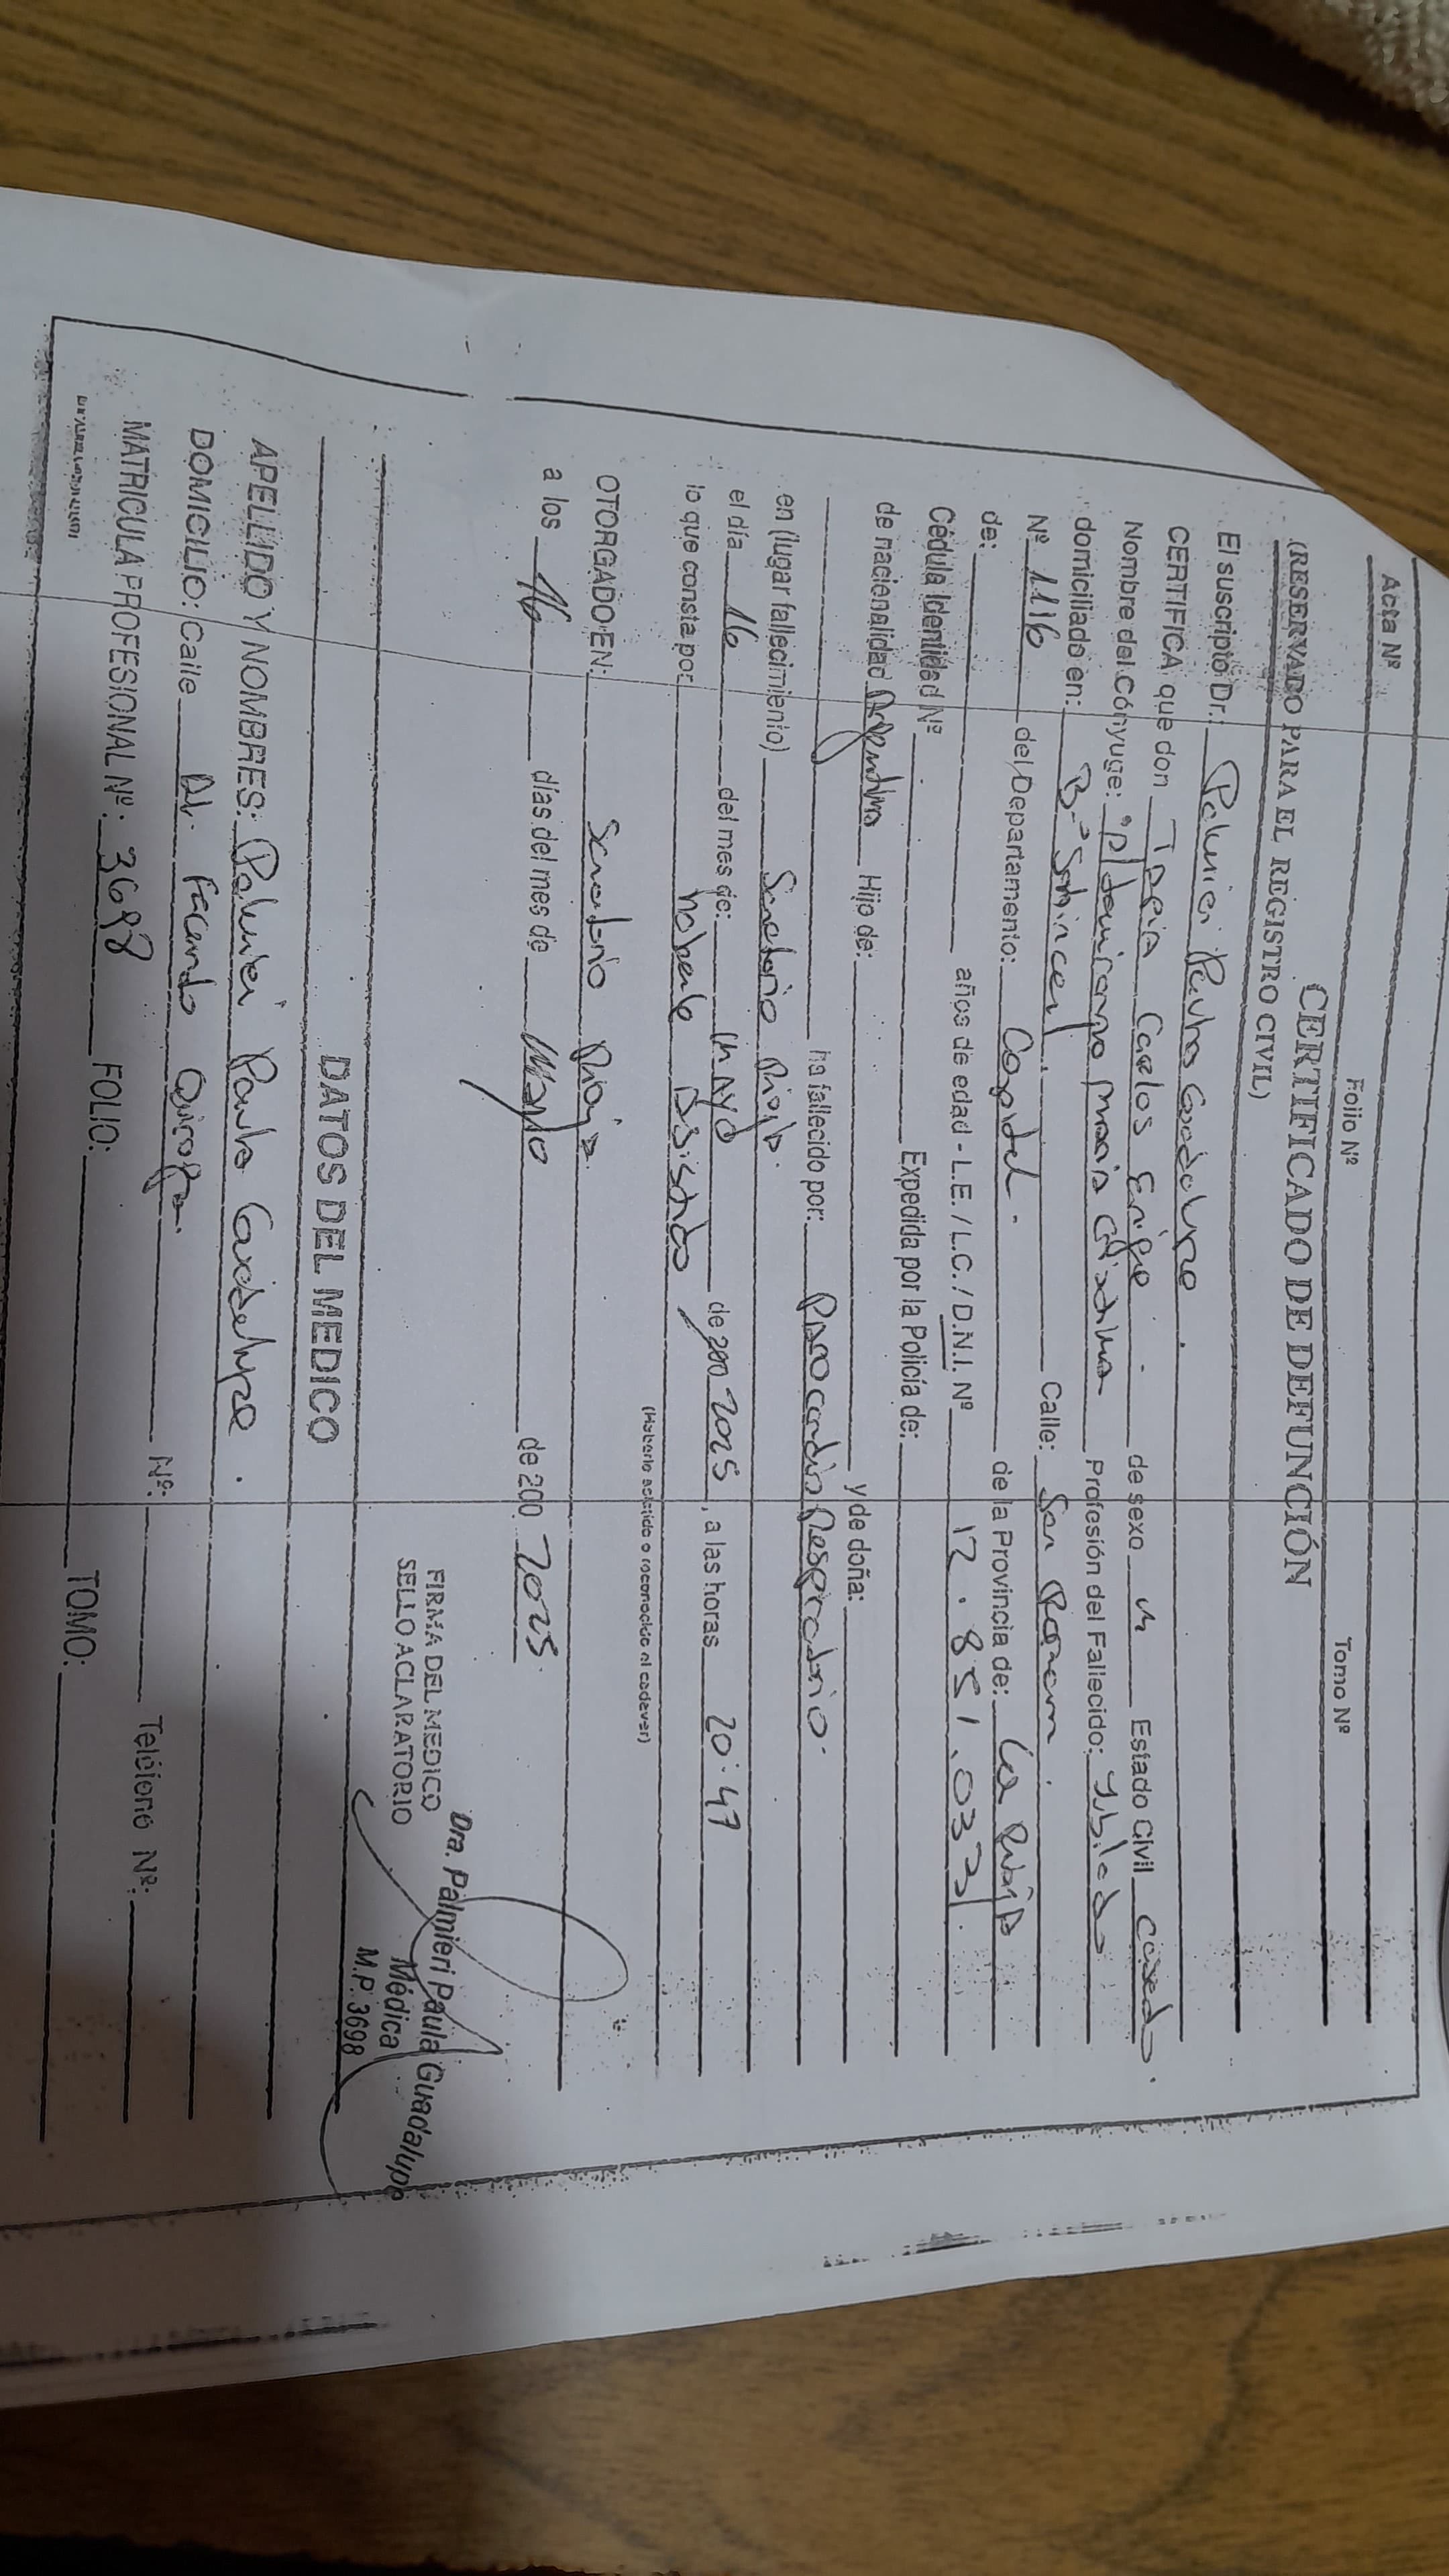 Acta Nº Folio Nº Tomo Nº
CERTIFICADO DE DEFUNCIÓN
(RESERVADO PARA EL REGISTRO CIVIL)
El suscripto Dr.: Palmieri Paula Guadalupe.
CERTIFICA que don Tapia Carlos Enrique - de sexo M Estado Civil Casado.
Nombre del Cónyuge: Maria Cristina Profesión del Fallecido: Jubilado
domiciliado en: Bº Calle: San Ramon.
Nº 1116 del Departamento: Capital - de la Provincia de: La Rioja
de: años de edad - L.E. / L.C. / D.N.I. Nº 12.851.033
Cédula Identidad Nº Expedida por la Policía de:
de nacionalidad Argentino Hijo de: y de doña:
ha fallecido por: Paro cardio Respiratorio.
en (lugar fallecimiento) Sanatorio Rioja.
el día 16 del mes de: Mayo de 200 2025, a las horas 20:47
lo que consta por: haberle Asistido
(Haberlo asistido o reconocido al cadaver)
OTORGADO EN: Sanatorio Rioja.
a los 16 días del mes de Mayo de 200 2025.
FIRMA DEL MEDICO
SELLO ACLARATORIO
Dra. Palmieri Paula Guadalupe
Médica
M.P. 3698
DATOS DEL MEDICO
APELLIDO Y NOMBRES: Palmieri Paula Guadalupe.
DOMICILIO: Calle Dr. Facundo Quiroga. Nº: Teléfono Nº:
MATRICULA PROFESIONAL Nº: 3698 FOLIO: TOMO: